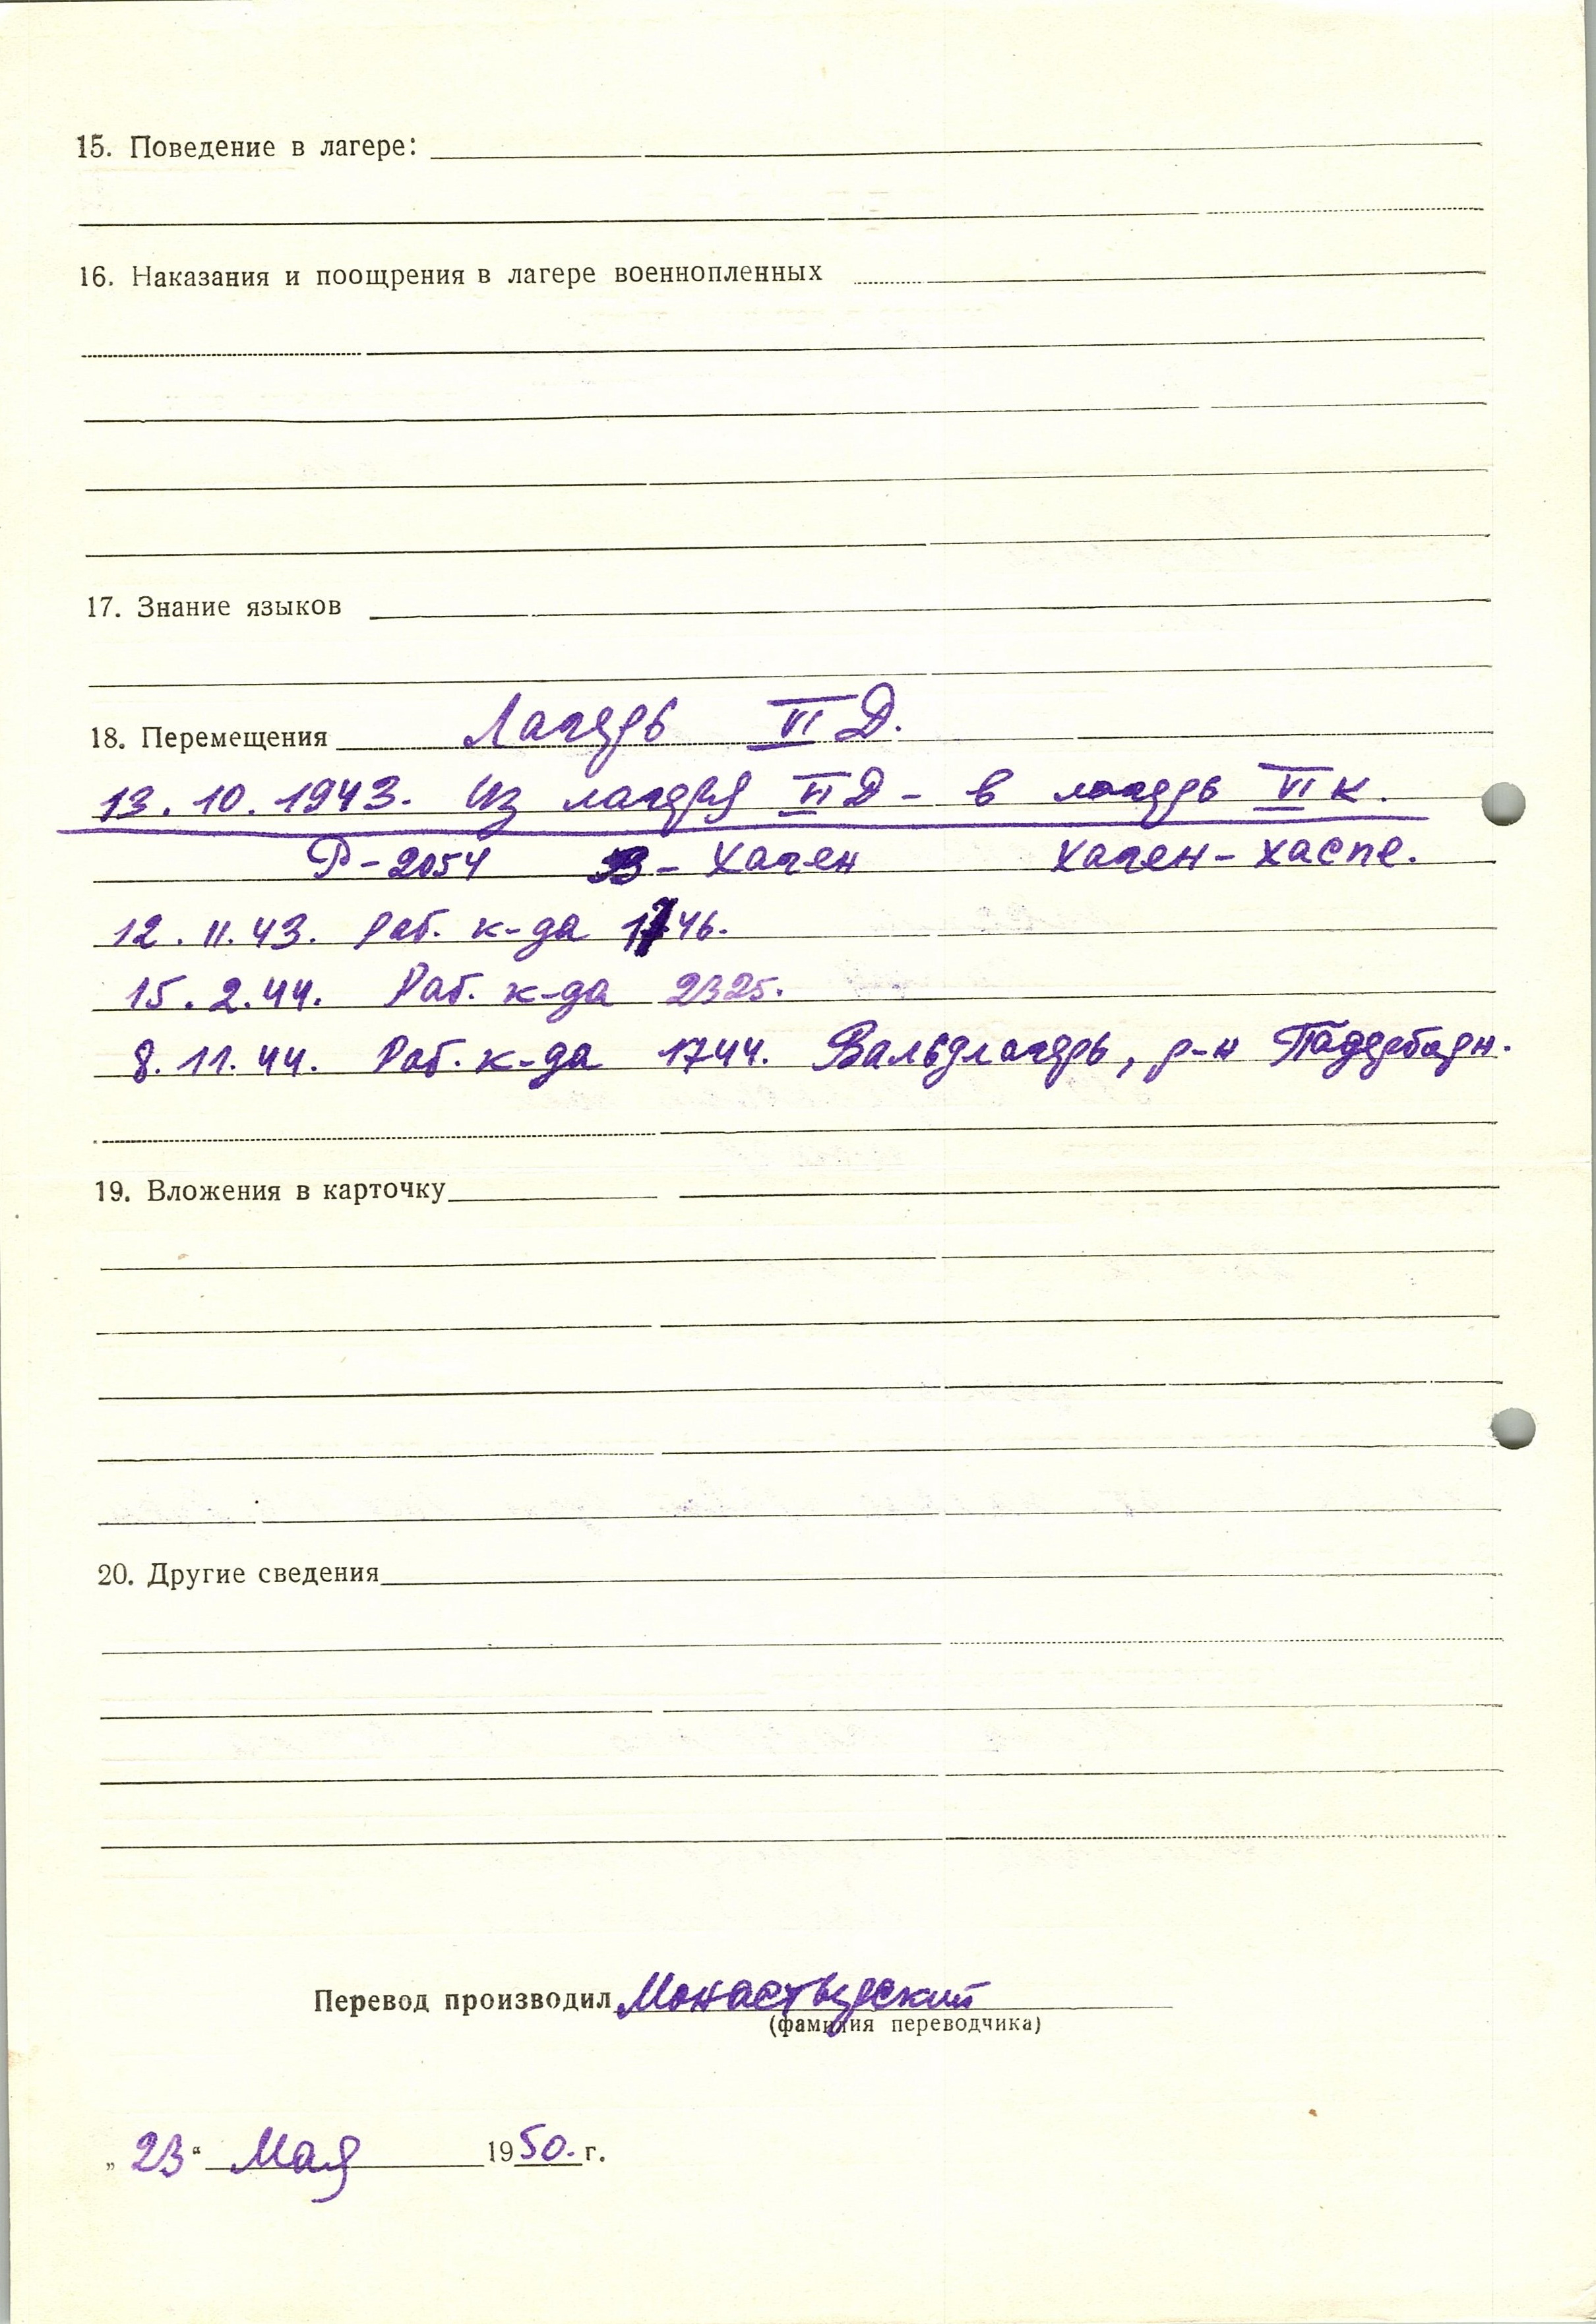 15. Поведение в лагере:
16. Наказания и поощрения в лагере военнопленных
17. Знание языков
18. Перемещения Лагерь VI Д.
13.10.1943. Из лагеря VI Д – в лагерь VI К.
Р-2054 В-Хаген Хаген-Хаспе.
12.11.43. Раб. к-да 1746.
15.2.44. Раб. к-да 2325.
8.11.44. Раб. к-да 1744. Вальдлагерь, р-н Падерборн.
19. Вложения в карточку
20. Другие сведения
Перевод производил Монастырский
(фамилия переводчика)
„23“ Мая 1950. г.